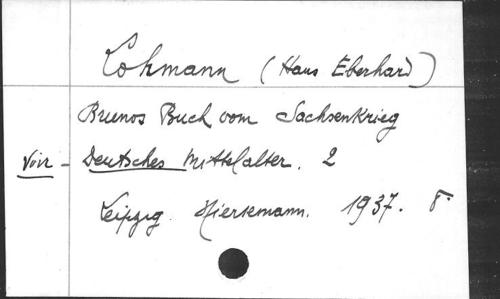 Lohmann (Hans Eberhard)
Brunos Buch vom Sachsenkrieg
Voir - Deutsches Mittelalter. 2
Leipzig. Hiersemann. 1937. 8°